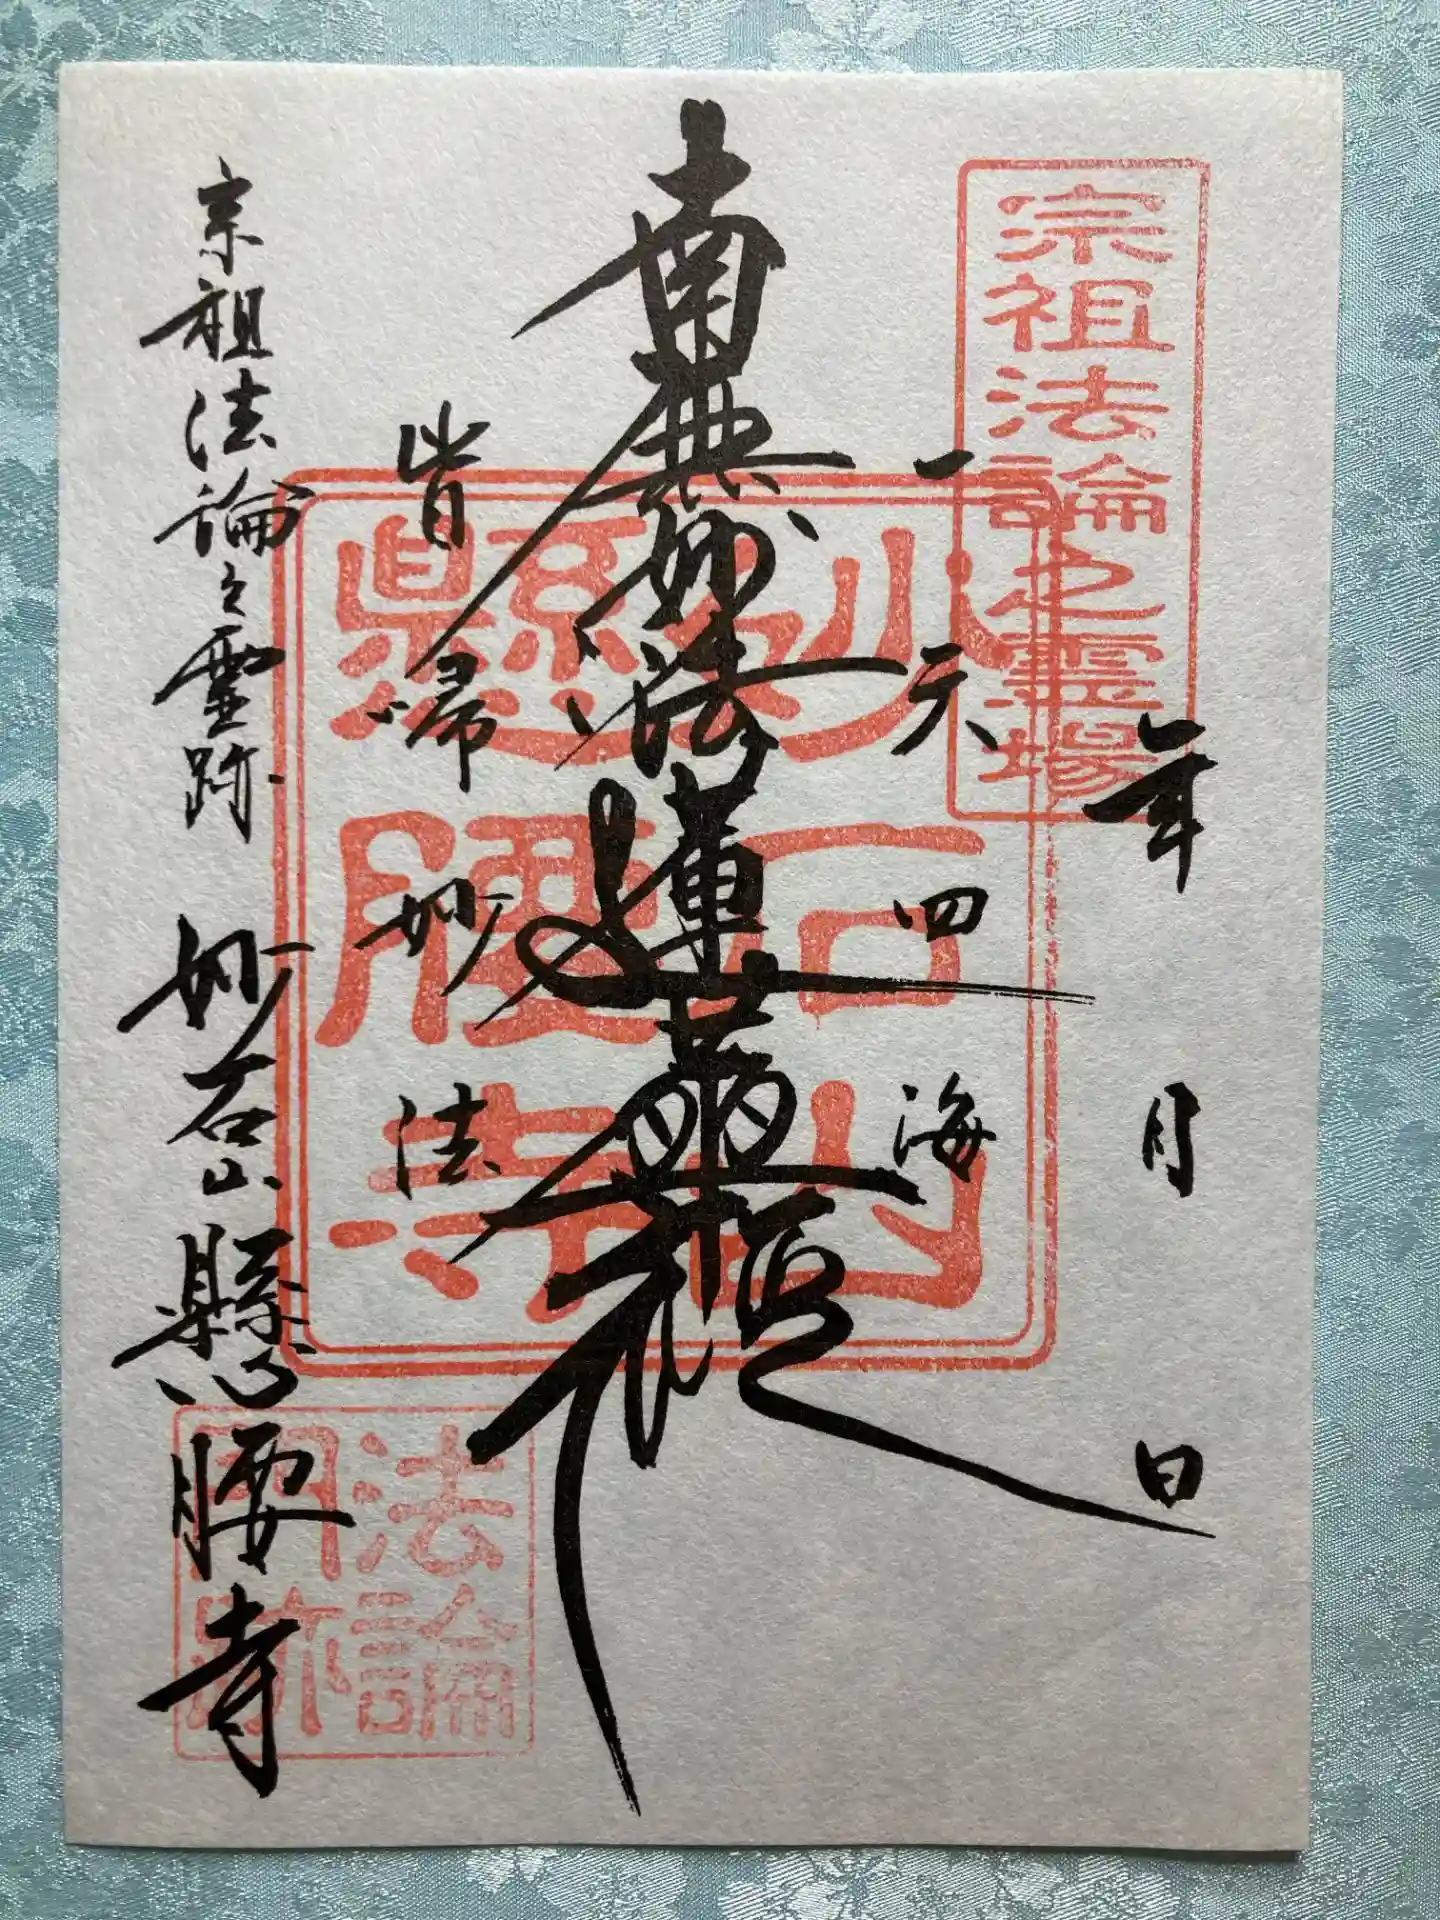 宗祖法論之霊場
年 月 日
一天四海
南無妙法蓮華経
皆帰妙法
宗祖法論之霊跡 妙石山懸腰寺
妙石山
懸腰寺
法論